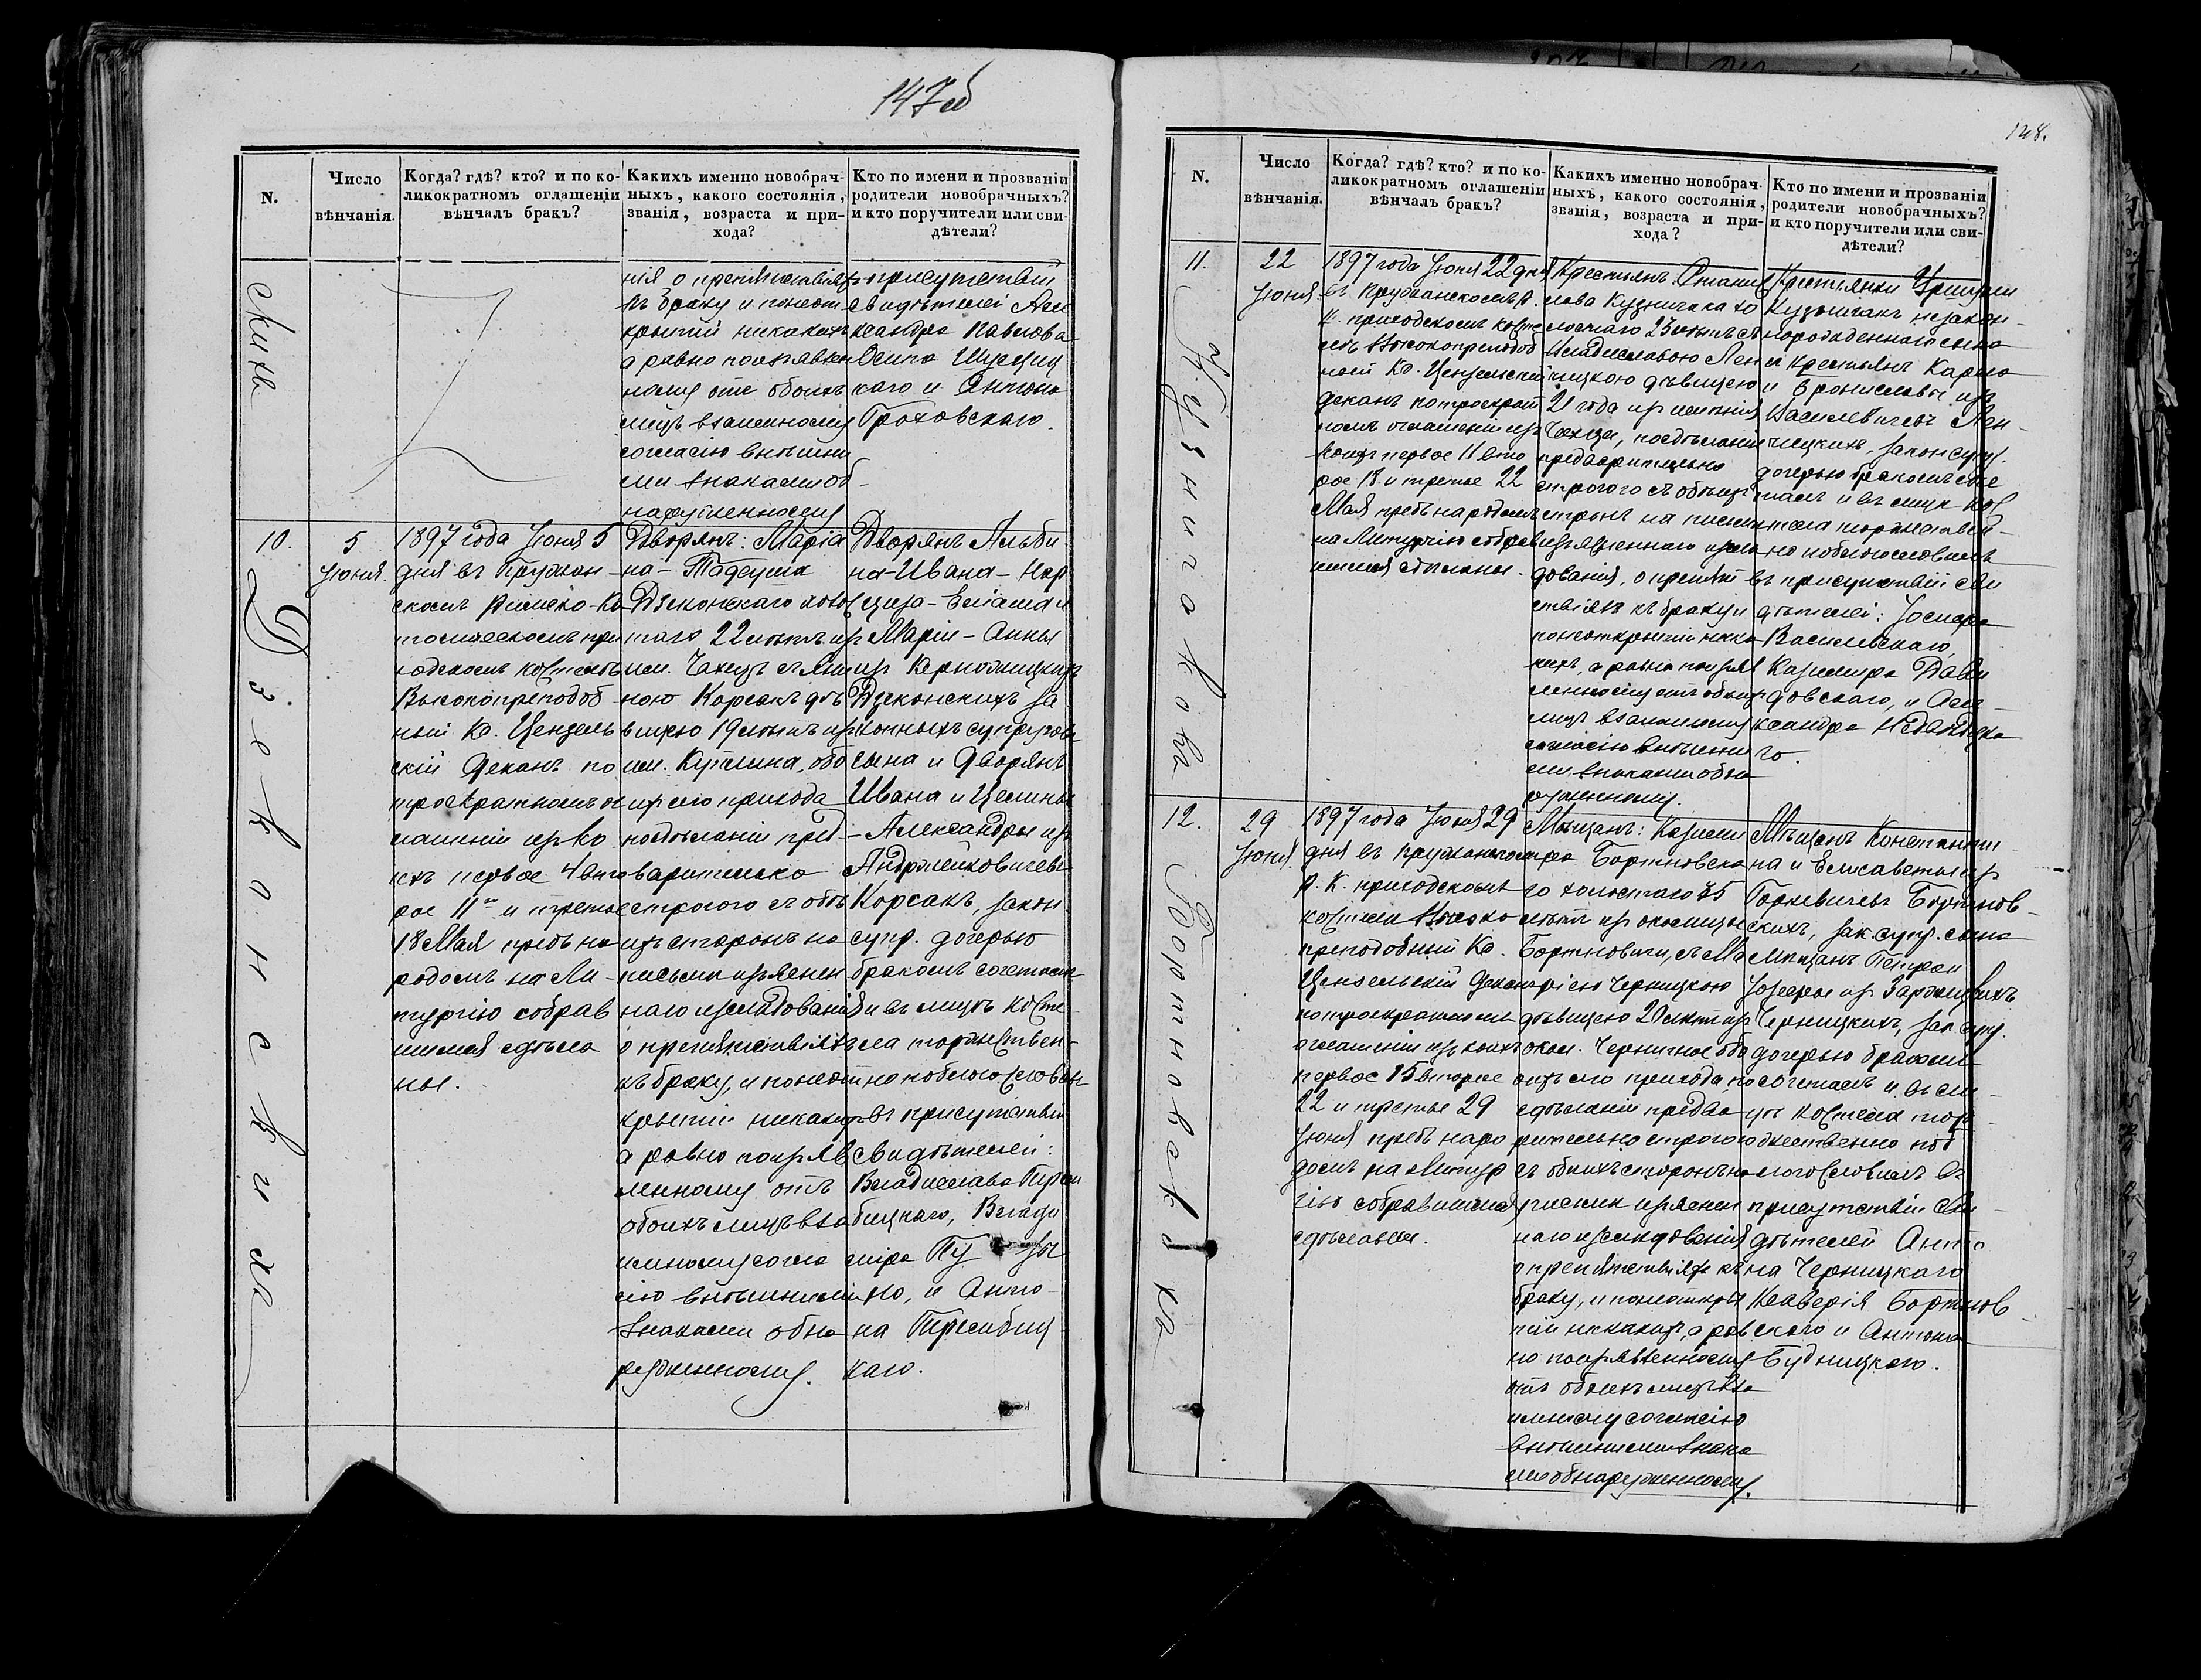 147об
N.
Число
вѣнчанія.
Когда? гдѣ? кто? и по ко-
ликократномъ оглашеніи
вѣнчалъ бракъ?
Какихъ именно новобрач-
ныхъ, какого состоянія,
званія, возраста и при-
хода?
Кто по имени и прозванію
родители новобрачныхъ?
и кто поручители или сви-
дѣтели?
скихъ
нія о препятствіяхъ
къ браку и понеот
крытіи никакихъ
а равно поизъявлен
ному отъ обоихъ
лицъ взаимному
согласію внѣшни
ми знаками об-
наруженному
присутствіи
свидѣтелей Алек
сандра Павлова
Осипа
каго и Антона
Гроховскаго.
10.
Дзеконскихъ
5
Іюня.
1897 года Іюня 5
дня въ Пружан-
скомъ Римско-Ка
толическомъ при
ходскомъ костелѣ
Высокопреподоб
ный Кс. Цензель
скій Деканъ по
троекратномъ ог
лашеніи изъ ко
ихъ первое 4 вто
рое 11 и третье
18 Мая предъ на
родомъ на Ли-
тургію собрав
шимся сдѣла
ны.
Дворянъ: Марiа
на-Тадеуша
Дзеконскаго холос
таго 22 лѣтъ изъ
им. Чахецъ съ Яни
ною Корсакъ дѣ
вицею 19 лѣтъ изъ
им. Куплина, обо
ихъ сего прихода
посдѣланіи пред
варительно
строгого съ обѣ
ихъ сторонъ на
письмѣ изъяснен
наго изслѣдованія
о препятствіяхъ
къ браку, и понеот
крытіи никакихъ
а равно поизъяв
ленному отъ
обоихъ лицъ вза
имному согла
сію внѣшними
знаками обна
руженному.
Дворянъ Альби
на-Ивана-Нар
циза- и
Маріи-Анны
изъ
Дзеконскихъ за
конныхъ супруговъ
сына и дворянъ
Ивана и Целины
-Александры изъ
Андржейковичевъ
Корсакъ, закон.
супр. дочерью
бракомъ сочеталъ
и въ лицѣ косте
ла торжествен-
но поблагословилъ
въ присутствіи
свидѣтелей:
Владислава
бицкаго, Влади
міра
но, и Анто-
на
каго.
148.
N.
Число
вѣнчанія.
Когда? гдѣ? кто? и по ко-
ликократномъ оглашеніи
вѣнчалъ бракъ?
Какихъ именно новобрач-
ныхъ, какого состоянія,
званія, возраста и при-
хода?
Кто по имени и прозванію
родители новобрачныхъ?
и кто поручители или сви-
дѣтели?
11.
Кузничака
22
Іюня.
1897 года Іюня 22 дня
въ Пружанскомъ Р.
К. приходскомъ косте
лѣ Высокопреподоб
ный Кс. Цензельскій
Деканъ потроекрат
номъ оглашеніи изъ
коихъ первое 11 вто
рое 18 и третье 22
Мая предъ народомъ
на Литургію собрав
шимся сдѣланы.
Крестьянъ: Станис
лава Кузничака хо
лостаго 25 лѣтъ съ
Владиславою Лен
чицкою дѣвицею
21 года изъ имѣнія
Чахца, посдѣланіи
предварительно
строгого съ обѣихъ
сторонъ на письмѣ
изъясненнаго изслѣ
дованія, о препят
ствіяхъ къ браку и
понеоткрытіи ника
кихъ, а равно поизъяв
ленному отъ обоихъ
лицъ взаимному
согласію внѣшни
ми знаками обна
руженному.
Крестьянки Уршули
Кузничакъ незакон-
норожденнаго сына
и крестьянъ Карла
и Брониславы изъ
Василевичевъ Лен-
чицкихъ, закон. супр.
дочерью бракомъ соче
талъ и въ лицѣ кос
тела торжествен-
но поблагословилъ
въ присутствіи сви
дѣтелей: Іосифа
Василевскаго,
Казимира Дави
довскаго, и Алек-
сандра
го.
12.
Бортновскихъ
29
Іюня.
1897 года Іюня 29
дня въ Пружанскомъ
Р. К. приходскомъ
костелѣ Высоко
преподобный Кс.
Цензельскій Деканъ
потроекратномъ
оглашеніи изъ коихъ
первое 15 второе
22 и третье 29
Іюня предъ наро
домъ на Литур
гію собравшимся
сдѣланы.
Мѣщанъ: Казими
ра Бортновска
го холостаго 35
лѣтъ изъ околицы
Бортновичи, съ Ма
ріею Черницкою
дѣвицею 20 лѣтъ изъ
окол. Черничное обо
ихъ сего прихода, по
сдѣланіи предва
рительно строгого
съ обѣихъ сторонъ на
письмѣ изъяснен
наго изслѣдованія
о препятствіяхъ къ
браку, и понеоткры
тіи никакихъ, а рав
но поизъявленному
отъ обоихъ лицъ вза
имному согласію
внѣшними знака
ми обнаруженному.
Мѣщанъ Константи
на и Елисаветы изъ
Горкевичевъ Бортнов-
скихъ, зак. супр. сына
мѣщанъ
Іозефы изъ
Черницкихъ, зак. супр.
дочерью бракомъ
сочеталъ и въ ли
цѣ костела тор
жественно поб
лагословилъ въ
присутствіи сви
дѣтелей Анто
на Черницкаго
Ксаверія Бортнов
скаго и Антона
Будницкаго.